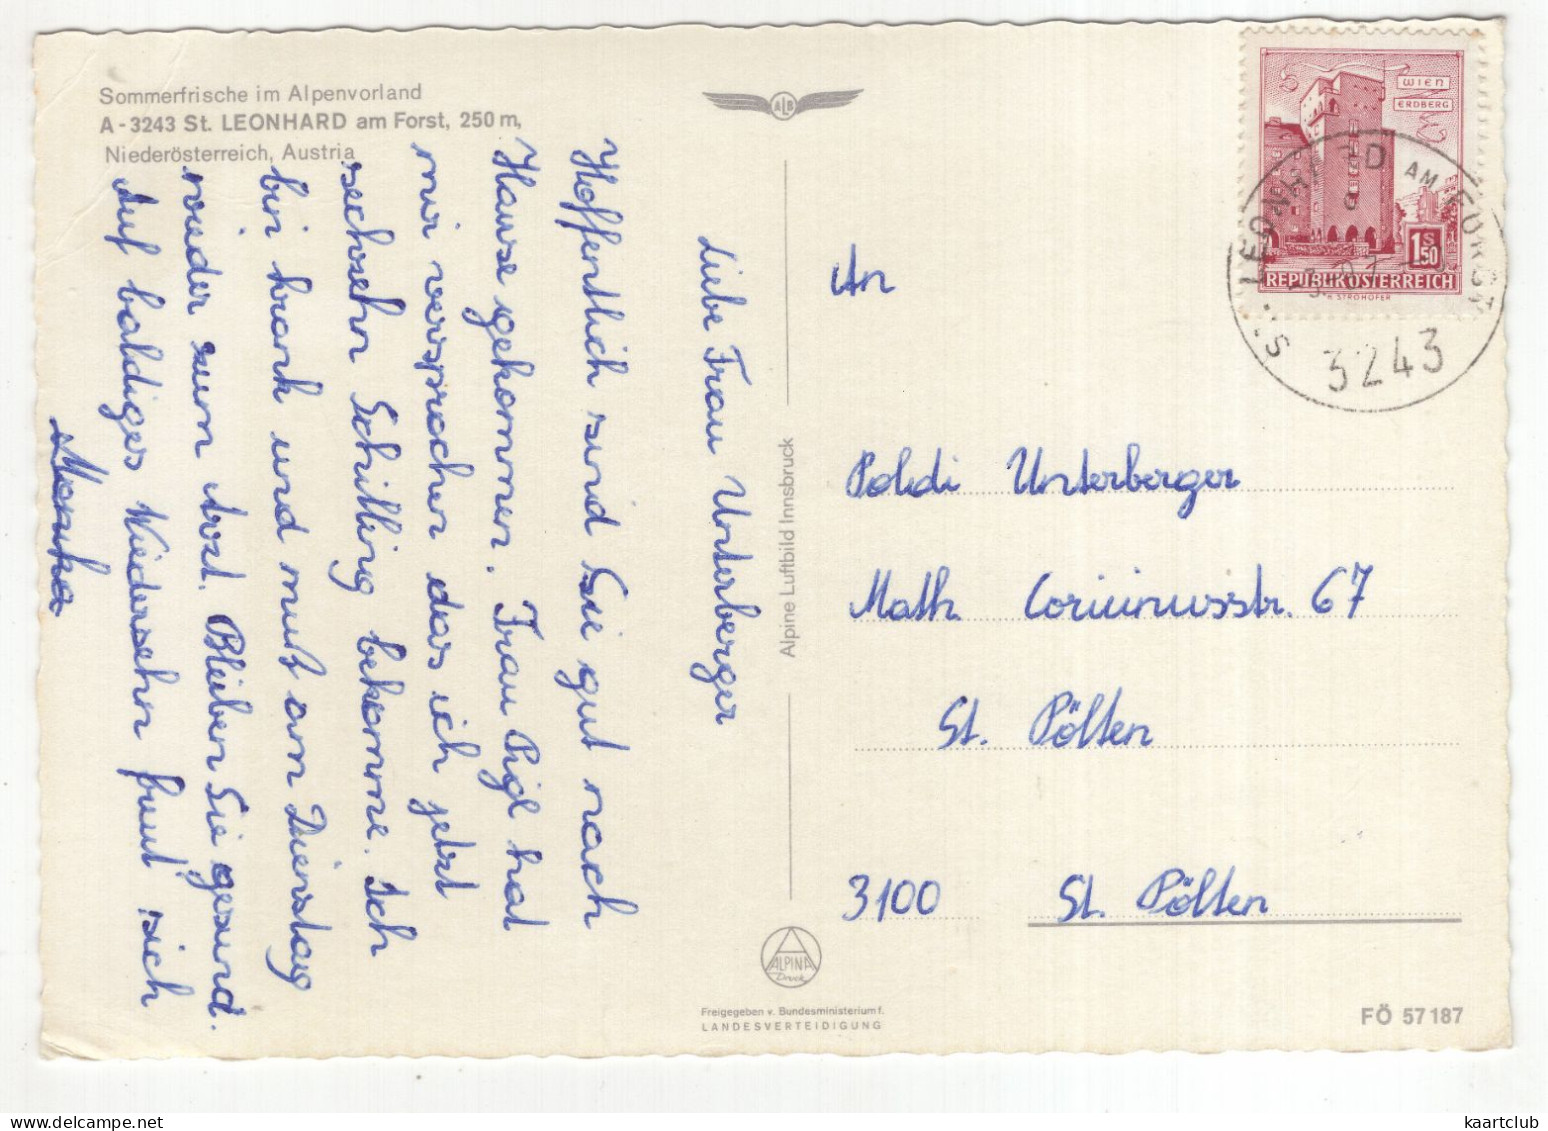 Sommerfrische im Alpenvorland
A-3243 St. LEONHARD am Forst, 250 m,
Niederösterreich, Austria
ALB
Liebe Frau Unterberger
Hoffentlich sind Sie gut nach
Hause gekommen. Frau Pigl hat
mir versprochen das ich jetzt
sechzehn Schilling bekomme. Ich
bin krank und muß am Dienstag
wieder zum Arzt. Bleiben Sie gesund.
Auf baldiges Wiedersehn freut sich
Monika
Alpine Luftbild Innsbruck
ALPINA
Druck
Freigegeben v. Bundesministerium f.
LANDESVERTEIDIGUNG
WIEN
ERDBERG
1S50
REPUBLIK ÖSTERREICH
H. STROHOFER
ST. LEONHARD AM FORST
3243
An
Poldi Unterberger
Math. Corvinusstr. 67
St. Pölten
3100 St. Pölten
FÖ 57187
kaartclub